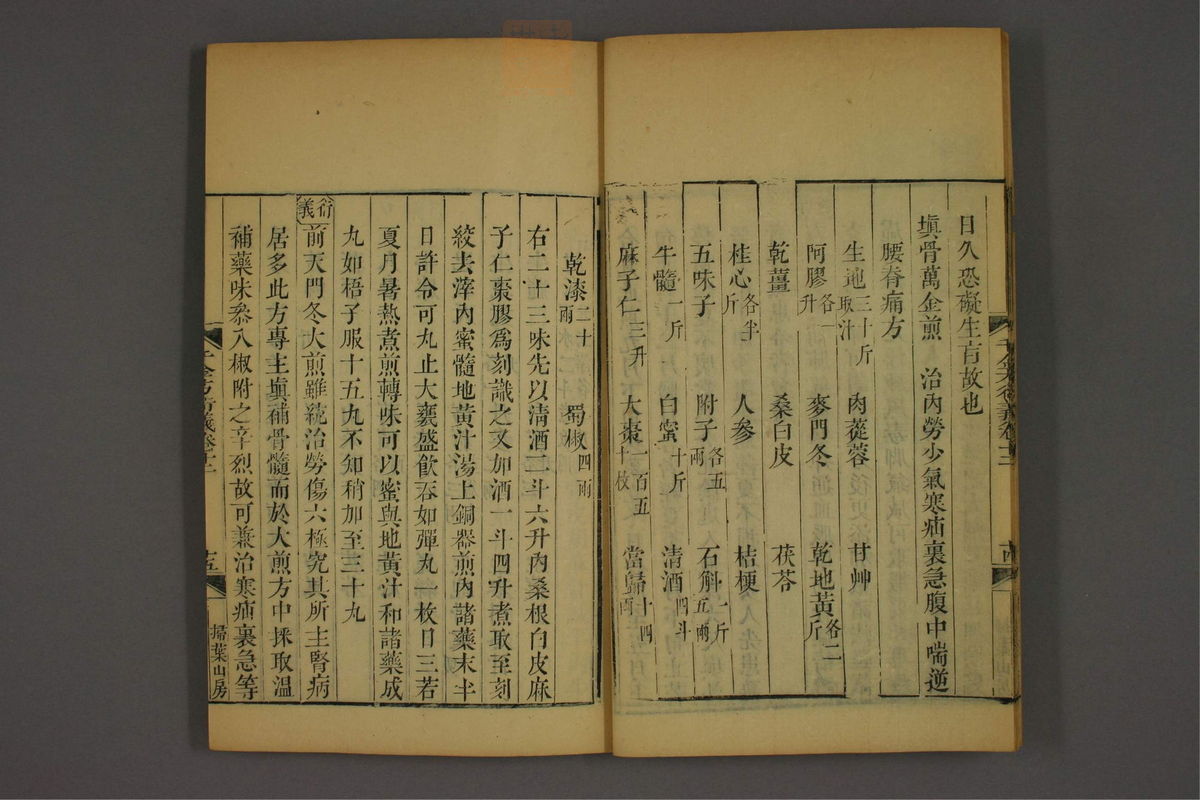 日久恐礙生育故也
填骨萬金煎 治內勞少氣寒疝裏急腹中喘逆
腰脊痛方
生地三十斤取汁 肉蓯蓉 甘艸
阿膠各一升 麥門冬 乾地黃各二斤
乾薑 桑白皮 茯苓
桂心各半斤 人參 桔梗
五味子 附子各五兩 石斛一斤五兩
牛髓一斤 白蜜十斤 清酒四斗
麻子仁三升 大棗一百五十枚 當歸十四兩
乾漆二十兩 蜀椒四兩
右二十三味先以清酒二斗六升內桑根白皮麻
子仁棗膠爲刻識之又加酒一斗四升煮取至刻
絞去滓內蜜髓地黃汁湯上銅器煎內諸藥末半
日許令可丸止大甕盛飲吞如彈丸一枚日三若
夏月暑熱煮煎轉味可以蜜與地黃汁和諸藥成
丸如梧子服十五丸不知稍加至三十丸
衍義
前天門冬大煎雖統治勞傷六極究其所主腎病
居多此方專主填補骨髓而於大煎方中採取溫
補藥味叅入椒附之辛烈故可兼治寒疝裏急等
千金方衍義卷十二
十五
掃葉山房